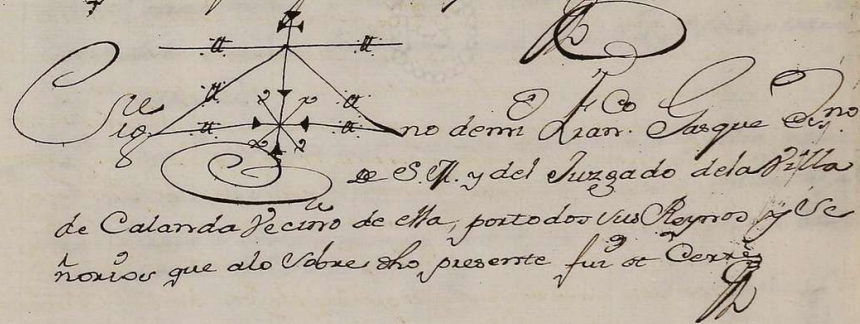 Sig no de mi Fran.co Gasque Ess.no
de S. M. y del Juzgado dela Villa
de Calanda Vecino de ella, por todos sus Reynos y Se
ñorios que alo sobre dho presente fui et Cerré